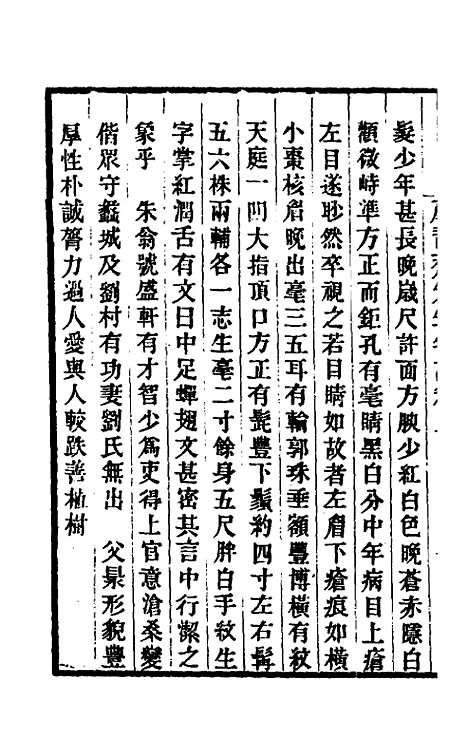 髮少年甚長晚歲尺許面方腴少紅白色晚蒼赤隱白
顴微峙準方正而鉅孔有毫睛黑白分中年病目上瘡
左目遂眇然卒視之若目睛如故者左眉下瘡痕如橫
小棗核眉晚出毫三五耳有輪郭珠垂額豐博橫有紋
天庭一凹大指頂口方正有髭豐下鬚約四寸左右髯
五六株兩輔各一志生毫二寸餘身五尺胖白手紋生
字掌紅潤舌有文曰中足蟬翅文甚密其言中行潔之
象乎　朱翁號盛軒有才智少爲吏得上官意滄桑變
偕眾守蠡城及劉村有功妻劉氏無出　父杲形貌豐
厚性朴誠膂力過人愛與人較跌善植樹